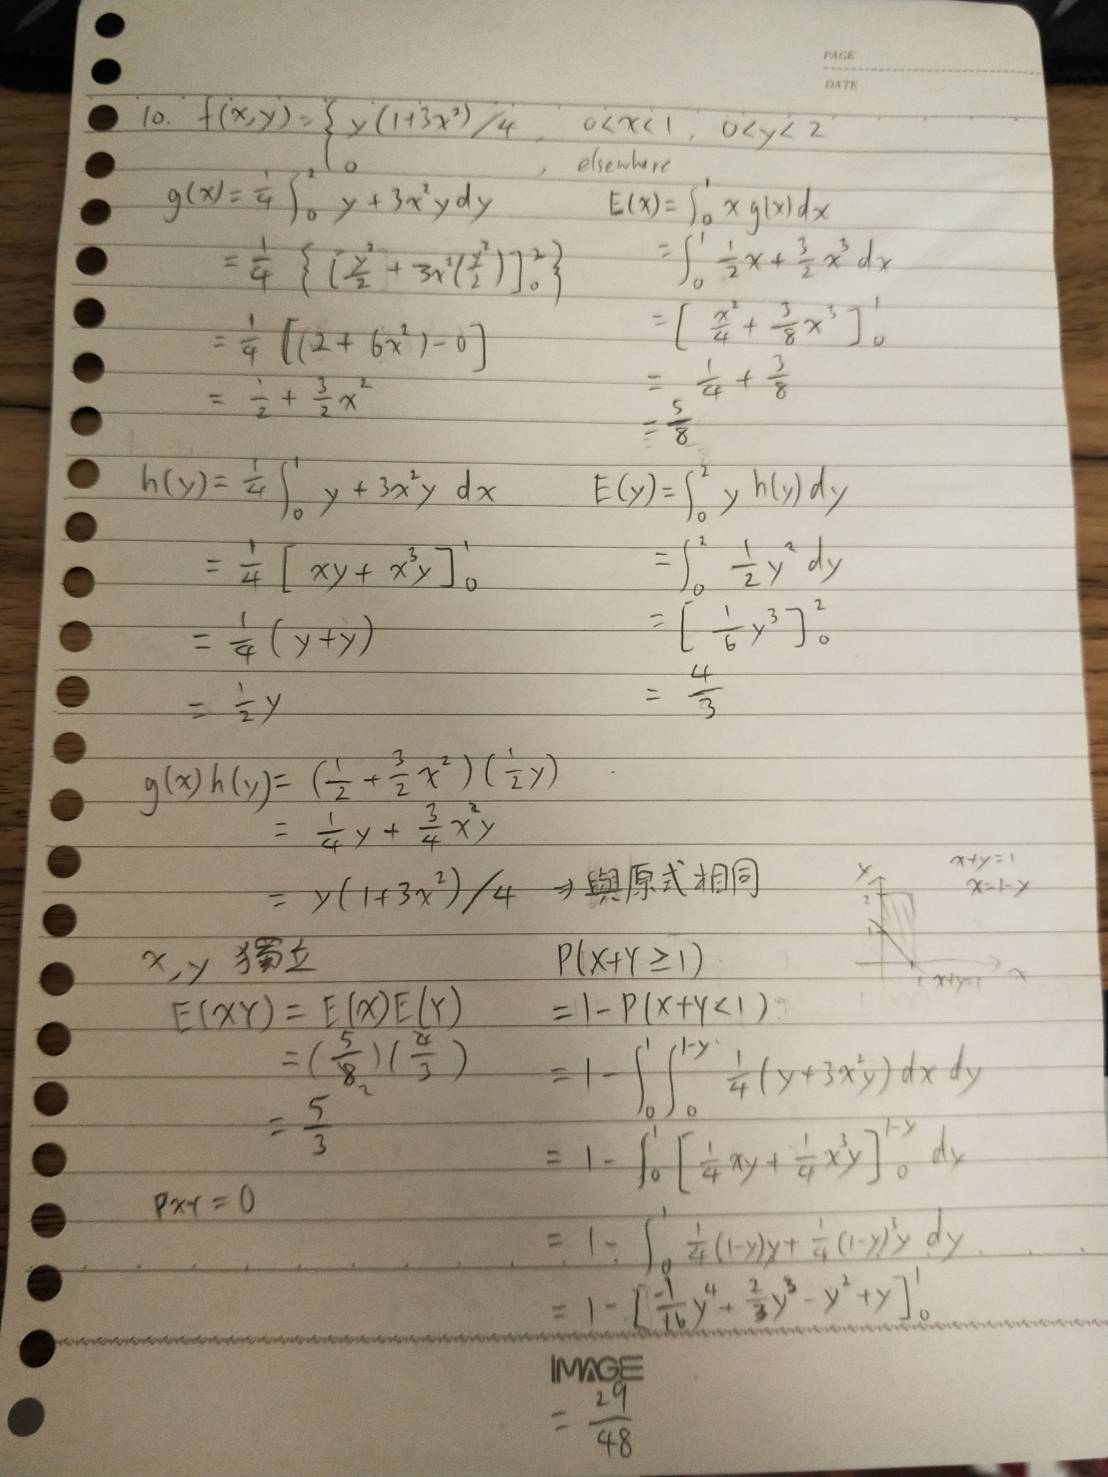 PAGE
DATE
10. f(x,y) = { y(1+3x²)/4 , 0<x<1 , 0<y<2
0 , elsewhere
g(x) = 1/4 ∫₀² y + 3x²y dy
= 1/4 { [y²/2 + 3x²(y²/2)]₀² }
= 1/4 [(2 + 6x²) - 0]
= 1/2 + 3/2 x²
E(x) = ∫₀¹ x g(x) dx
= ∫₀¹ 1/2 x + 3/2 x³ dx
= [x²/4 + 3/8 x³]₀¹
= 1/4 + 3/8
= 5/8
h(y) = 1/4 ∫₀¹ y + 3x²y dx
= 1/4 [xy + x³y]₀¹
= 1/4 (y+y)
= 1/2 y
E(y) = ∫₀² y h(y) dy
= ∫₀² 1/2 y² dy
= [1/6 y³]₀²
= 4/3
g(x)h(y) = (1/2 + 3/2 x²)(1/2 y)
= 1/4 y + 3/4 x²y
= y(1+3x²)/4 → 與原式相同
x,y 獨立
E(XY) = E(X)E(Y)
= (5/8)(4/3)
2
= 5/3
ρxy = 0
y
2
1
1
x
x+y=1
x+y=1
x=1-y
P(X+Y ≥ 1)
= 1 - P(X+Y<1)
= 1 - ∫₀¹ ∫₀^(1-y) 1/4 (y+3x²y) dx dy
= 1 - ∫₀¹ [1/4 xy + 1/4 x³y]₀^(1-y) dy
= 1 - ∫₀¹ 1/4 (1-y)y + 1/4 (1-y)³y dy
= 1 - [-1/16 y⁴ + 2/3 y³ - y² + y]₀¹
IMAGE
= 29/48